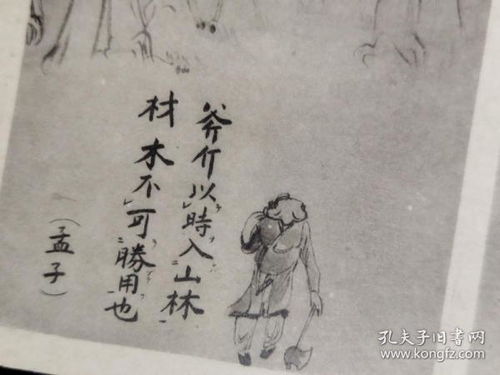 斧斤以時入山林
材木不可勝用也
（孟子）
孔夫子旧书网
www.kongfz.com